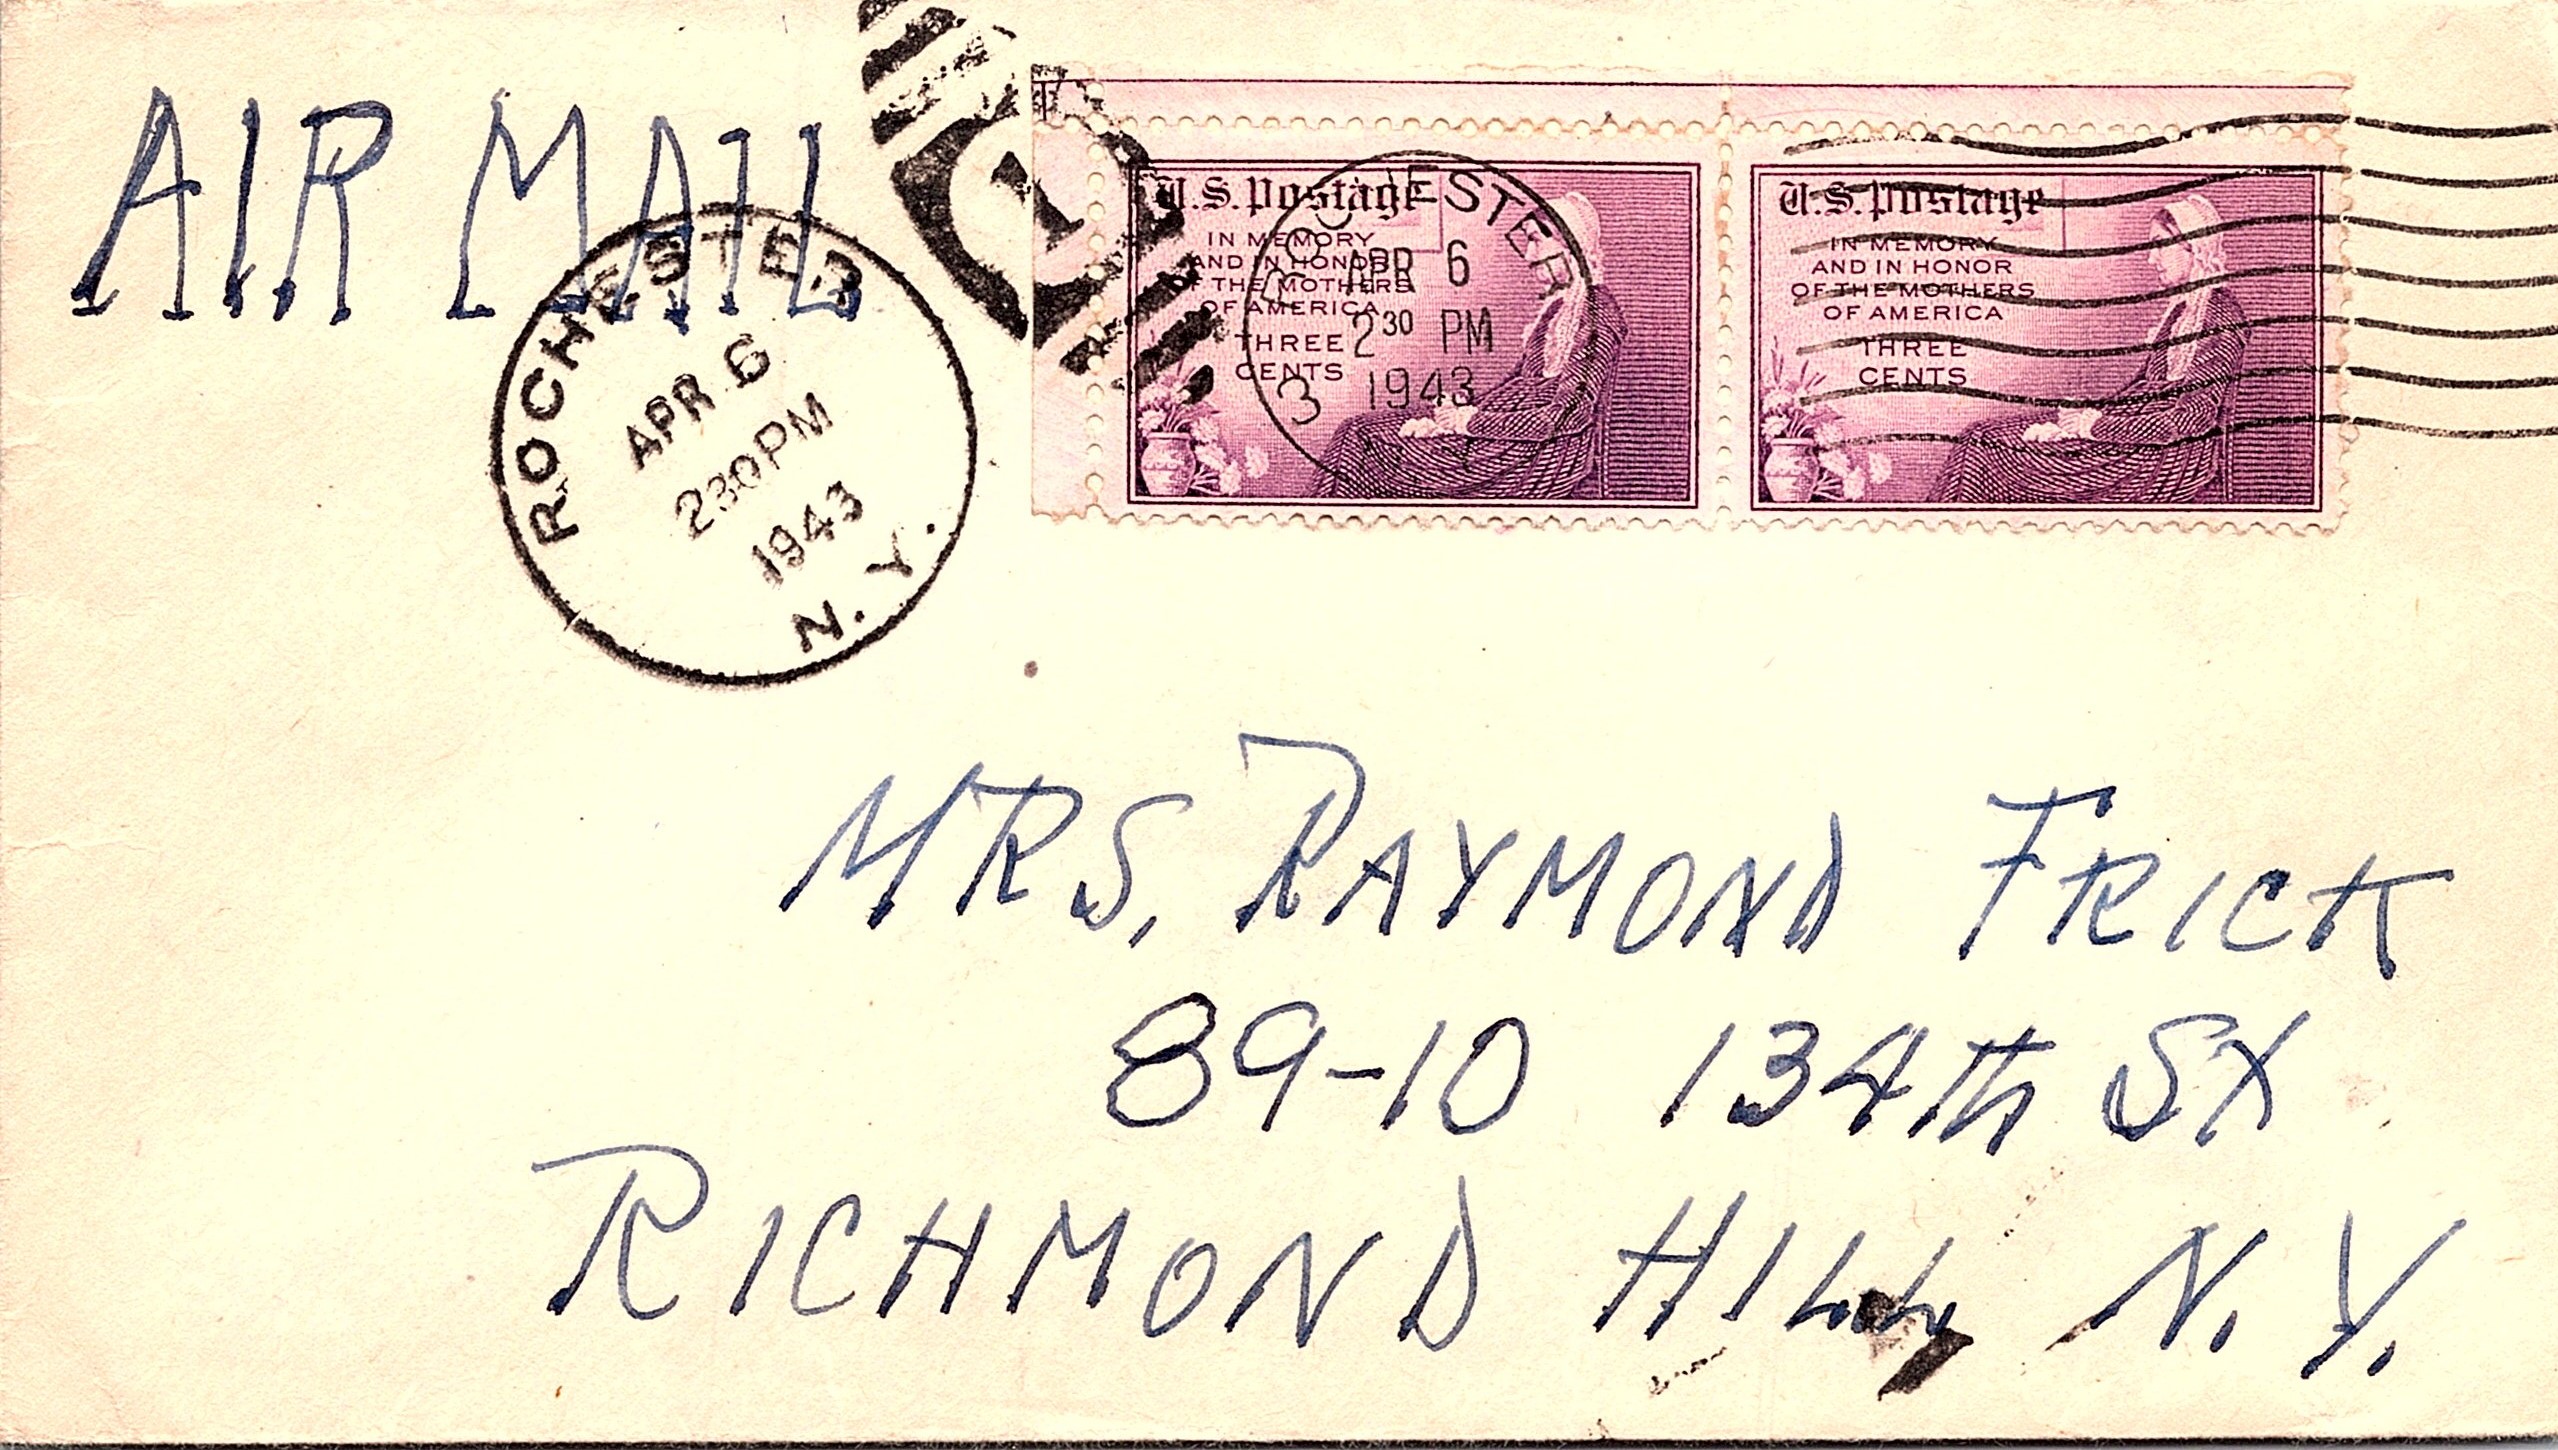 AIR MAIL
ROCHESTER
APR 6
230PM
1943
N. Y.
1
U.S. Postage
IN MEMORY
AND IN HONOR
OF THE MOTHERS
OF AMERICA
THREE
CENTS
ROCHESTER
APR 6
2 30 PM
1943
3
N. Y.
U.S. Postage
IN MEMORY
AND IN HONOR
OF THE MOTHERS
OF AMERICA
THREE
CENTS
MRS. RAYMOND FRICK
89-10 134th ST
RICHMOND HILL N. Y.